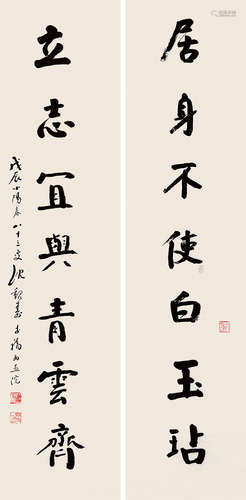 居身不使白玉玷
立志宜與青雲齊
戊辰小陽春八十三叟沈觀壽